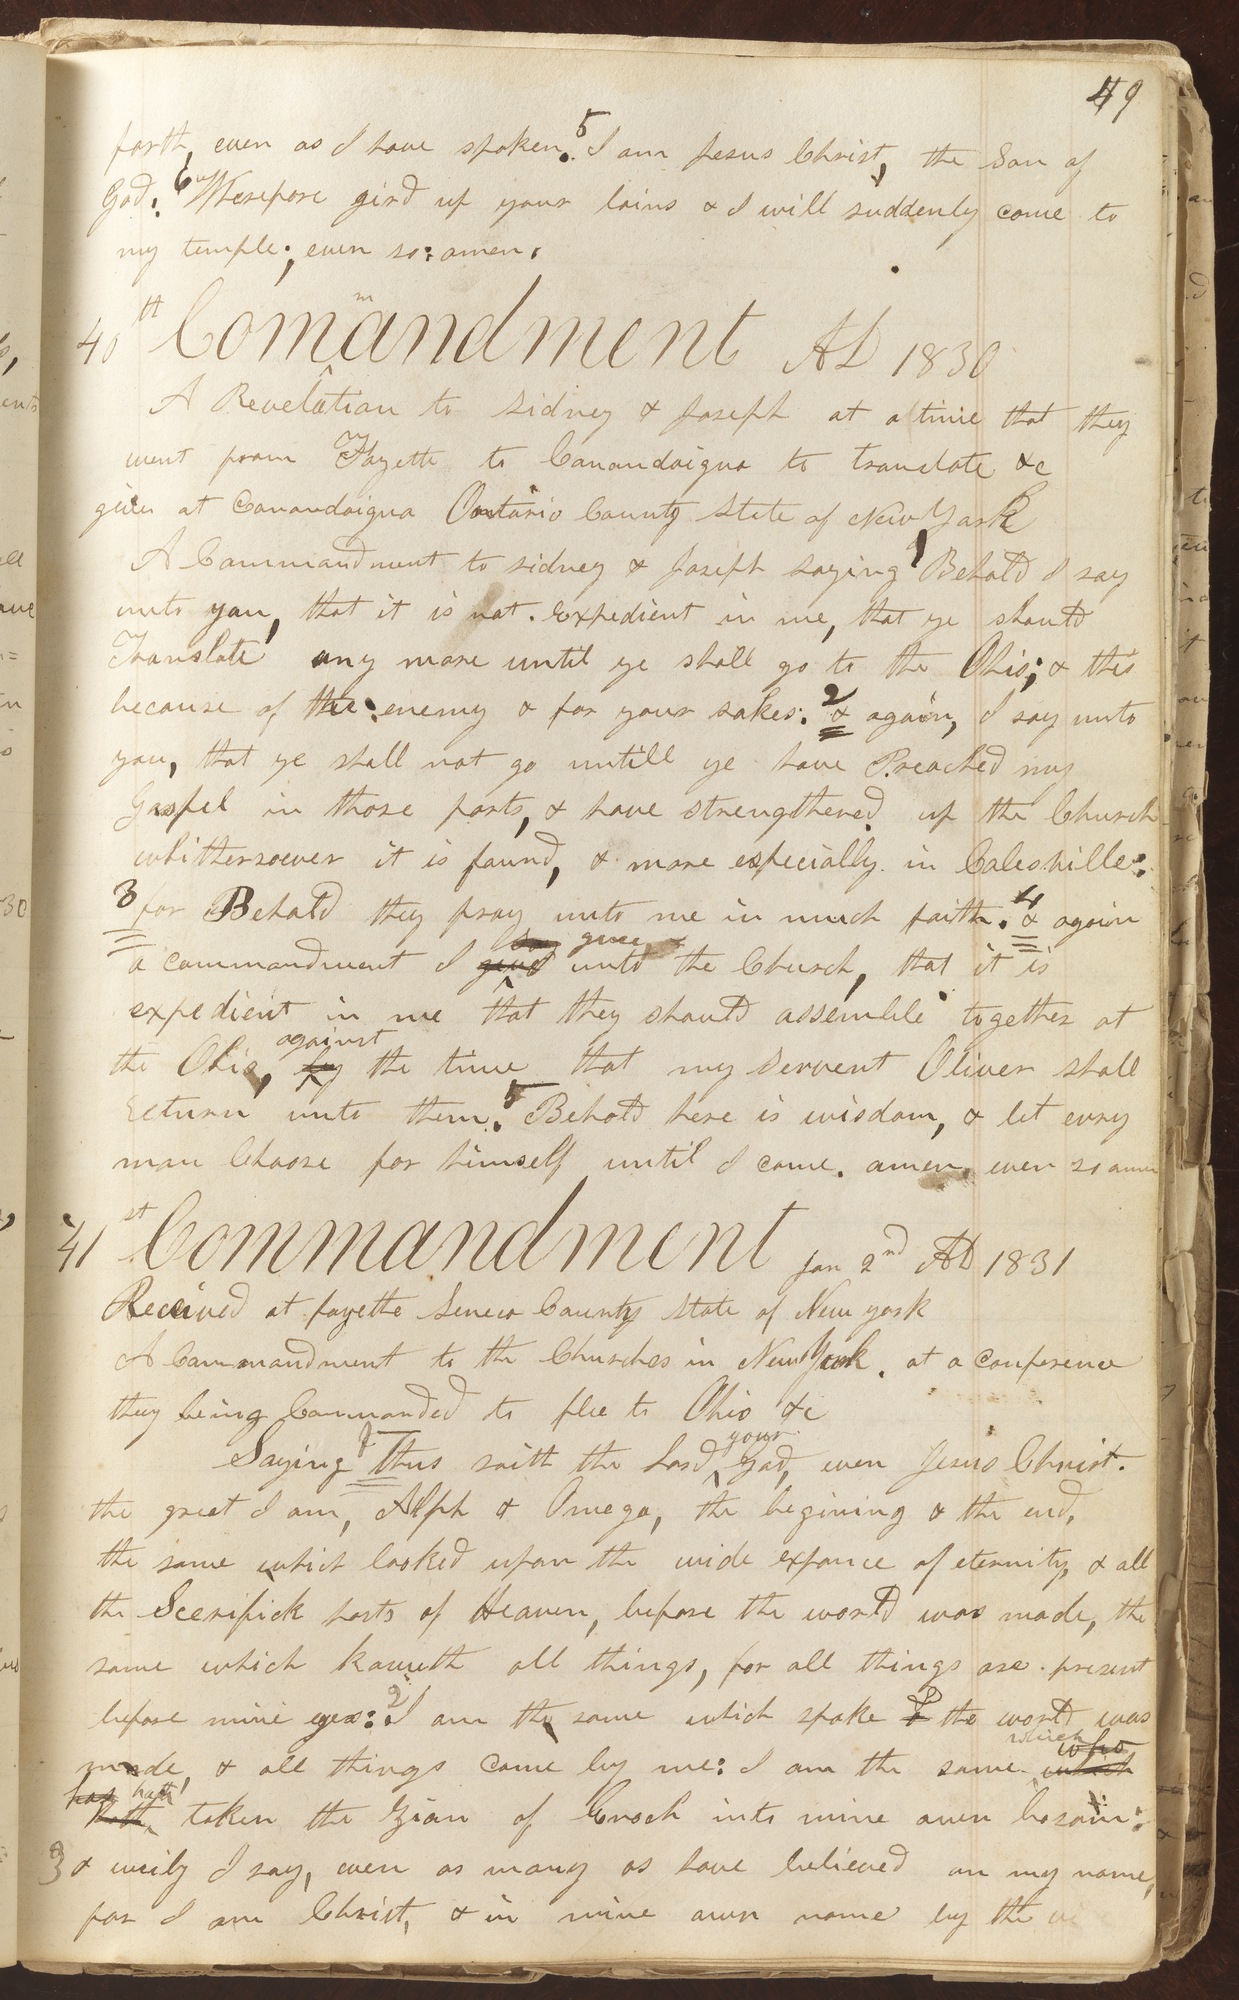 49
forth, even as I have spoken. 5 I am Jesus Christ, the Son of
God: 6 Wherefore gird up your loins & I will suddenly come to
my temple; even so: amen.
40th Commandment AD 1830
A Revelation to Sidney & Joseph at a time that they
went from Fayette to Canandaigua to translate &c
given at Canandaigua Ontario County State of New York
A Commandment to Sidney & Joseph saying 1 Behold I say
unto you, that it is not. Expedient in me, that ye should
Translate any more until ye shall go to the Ohio; & this
because of the enemy & for your sakes: 2 & again, I say unto
you, that ye shall not go untill ye have Preached my
Gospel in those parts, & have strengthened up the Church
whithersoever it is found, & more especially in Colesville:
3 for Behold they pray unto me in much faith. 4 & again
a commandment I give unto the Church, that it is
expedient in me that they should assemble together at
the Ohio, by against the time that my Servent Oliver shall
Return unto them. 5 Behold here is wisdom, & let evry
man Choose for himself until I come. amen, even so amen
41st Commandment Jan 2nd AD 1831
Received at fayette Seneca County State of New york
A Commandment to the Churches in New York. at a conference
they being Commanded to flee to Ohio &c
Saying 1 Thus saith the Lord your God, even Jesus Christ.
the great I am, Alph & Omega, the begining & the end,
the same which looked upon the wide expance of eternity, & all
the Seerifick hosts of Heaven, before the world was made, the
same which knoweth all things, for all things are present
before mine eyes: 2 I am the same which spoke & the world was
made, & all things came by me: I am the same which who which
has hath hath taken the Zion of Enoch into mine own bosom:
3 & verily I say, even as many as have believed on my name,
for I am Christ, & in mine own name by the